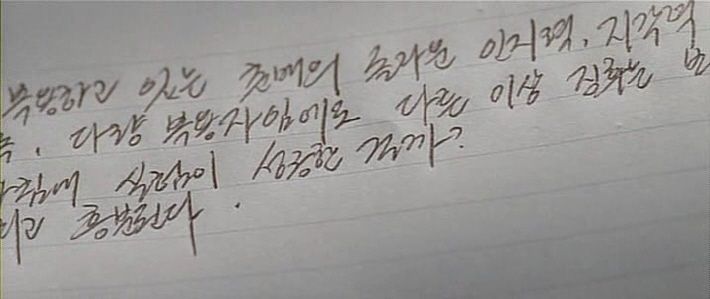 복용하고 있는 환매의 놀라운 인지력, 지각력
다량 복용자임에도 다른 이상 징후는
실험이 성공한 걸까?
흥분된다.